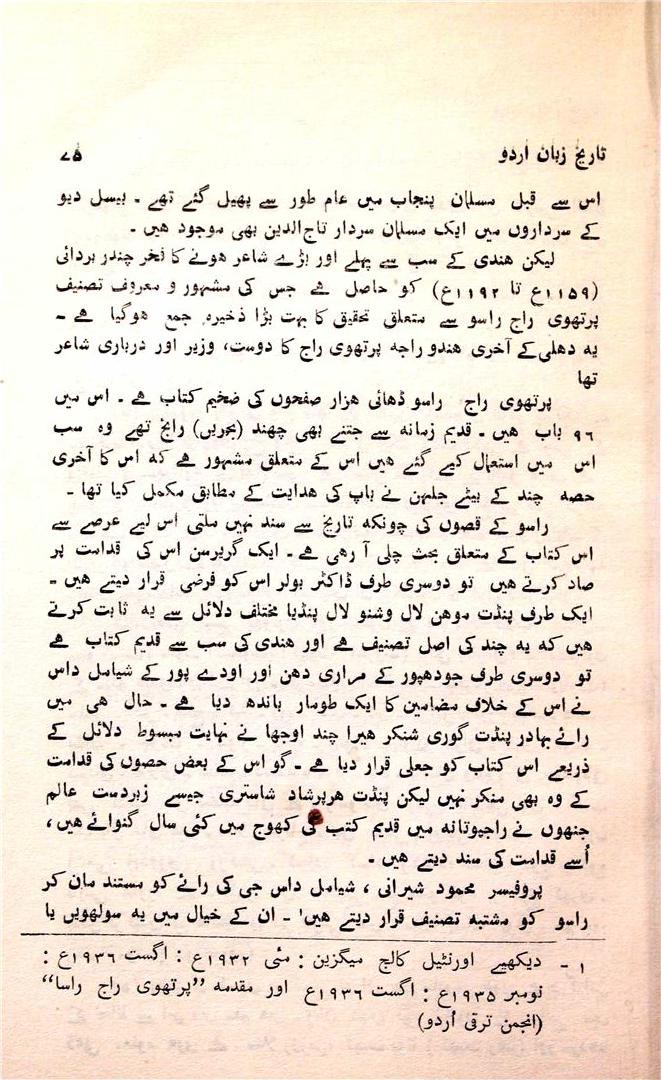 تاریخ زبان اردو ۷۵
اس سے قبل مسلمان پنجاب میں عام طور سے پھیل گئے تھے ۔ بیسل دیو
کے سرداروں میں ایک مسلمان سردار تاج‌الدین بھی موجود ہیں ۔
لیکن ہندی کے سب سے پہلے اور بڑے شاعر ہونے کا فخر چندر بردائی
(۱۱۵۹ع تا ۱۱۹۲ع) کو حاصل ہے جس کی مشہور و معروف تصنیف
پرتھوی راج راسو سے متعلق تحقیق کا بہت بڑا ذخیرہ جمع ہوگیا ہے ۔
یہ دہلی کے آخری ہندو راجہ پرتھوی راج کا دوست، وزیر اور درباری شاعر
تھا
پرتھوی راج راسو ڈھائی ہزار صفحوں کی ضخیم کتاب ہے ۔ اس میں
۹۶ باب ہیں ۔ قدیم زمانہ سے جتنے بھی چھند (بحریں) رائج تھے وہ سب
اس میں استعمال کیے گئے ہیں اس کے متعلق مشہور ہے کہ اس کا آخری
حصہ چند کے بیٹے جلہن نے باپ کی ہدایت کے مطابق مکمل کیا تھا ۔
راسو کے قصوں کی چونکہ تاریخ سے سند نہیں ملتی اس لیے عرصے سے
اس کتاب کے متعلق بحث چلی آ رہی ہے ۔ ایک گریرسن اس کی قدامت پر
صاد کرتے ہیں تو دوسری طرف ڈاکٹر بولر اس کو فرضی قرار دیتے ہیں ۔
ایک طرف پنڈت موہن لال وشنو لال پنڈیا مختلف دلائل سے یہ ثابت کرتے
ہیں کہ یہ چند کی اصل تصنیف ہے اور ہندی کی سب سے قدیم کتاب ہے
تو دوسری طرف جودھپور کے مراری دھن اور اودے پور کے شیامل داس
نے اس کے خلاف مضامین کا ایک طومار باندھ دیا ہے ۔ حال ہی میں
رائے بہادر پنڈت گوری شنکر ہیرا چند اوجھا نے نہایت مبسوط دلائل کے
ذریعے اس کتاب کو جعلی قرار دیا ہے ۔ گو اس کے بعض حصوں کی قدامت
کے وہ بھی منکر نہیں لیکن پنڈت ہرپرشاد شاستری جیسے زبردست عالم
جنھوں نے راجپوتانہ میں قدیم کتب کی کھوج میں کئی سال گنوائے ہیں،
اُسے قدامت کی سند دیتے ہیں ۔
پروفیسر محمود شیرانی ، شیامل داس جی کی رائے کو مستند مان کر
راسو کو مشتبہ تصنیف قرار دیتے ہیں۱ ۔ ان کے خیال میں یہ سولھویں یا
۱ ۔ دیکھیے اورنٹیل کالج میگزین : مئی ۱۹۳۲ع : اگست ۱۹۳۶ع :
نومبر ۱۹۳۵ع : اگست ۱۹۳۶ع اور مقدمہ ”پرتھوی راج راسا“
(انجمن ترقی اُردو)